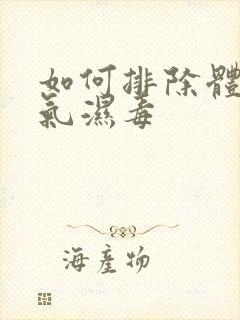 如何排除體
氣濕毒
海產物